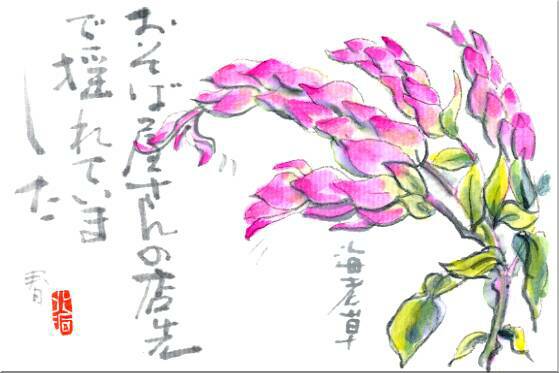 おそば屋さんの店先
で揺れていま
した
海老草